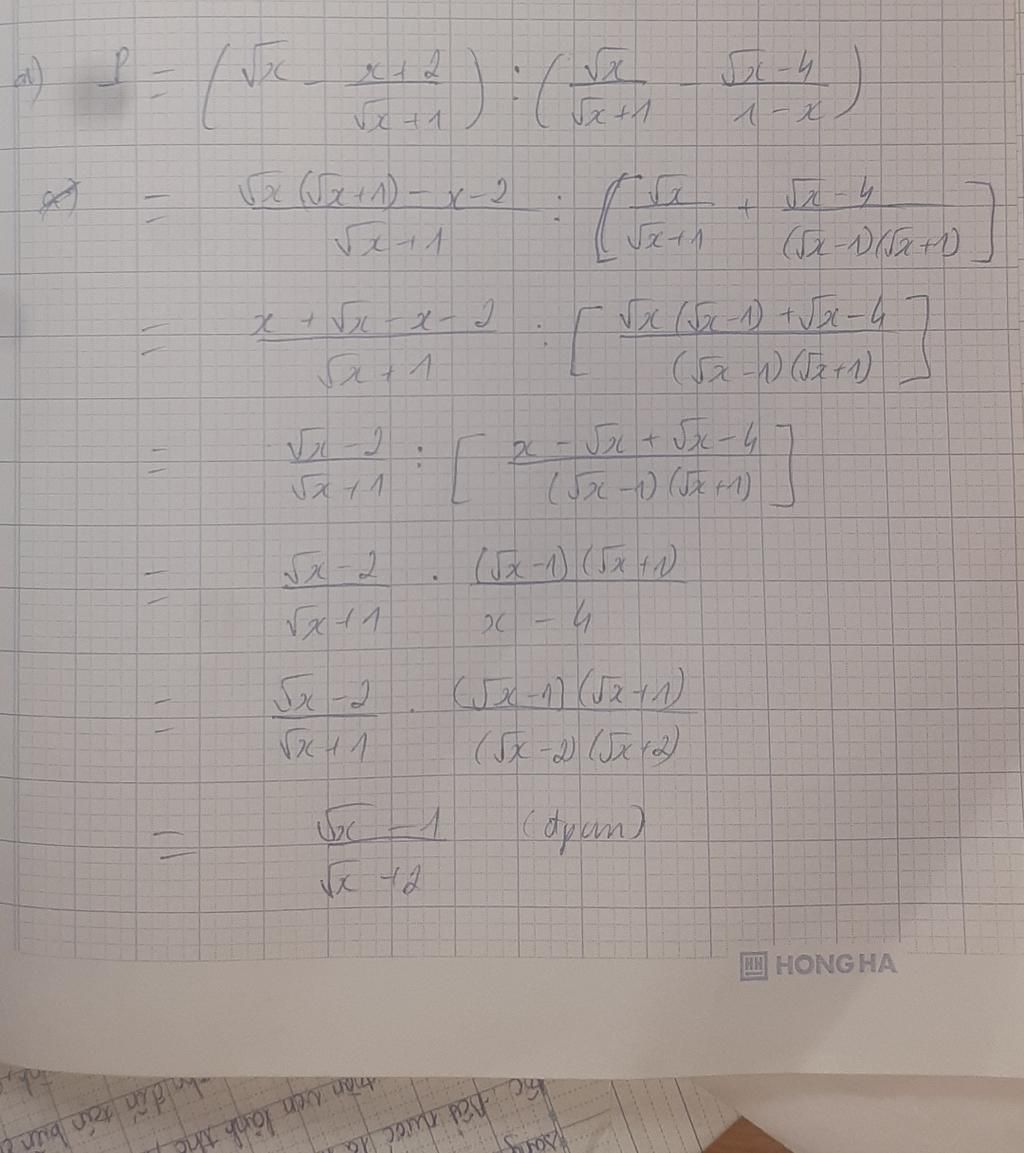 a) P = (√x - (x+2)/(√x+1)) : (√x/(√x+1) - (√x-4)/(1-x))
= (√x(√x+1)-x-2)/(√x+1) : [√x/(√x+1) + (√x-4)/((√x-1)(√x+1))]
= (x+√x-x-2)/(√x+1) : [(√x(√x-1)+√x-4)/((√x-1)(√x+1))]
= (√x-2)/(√x+1) : [(x-√x+√x-4)/((√x-1)(√x+1))]
= (√x-2)/(√x+1) . ((√x-1)(√x+1))/(x-4)
= (√x-2)/(√x+1) . ((√x-1)(√x+1))/((√x-2)(√x+2))
= (√x-1)/(√x+2) (đpcm)
HONG HA